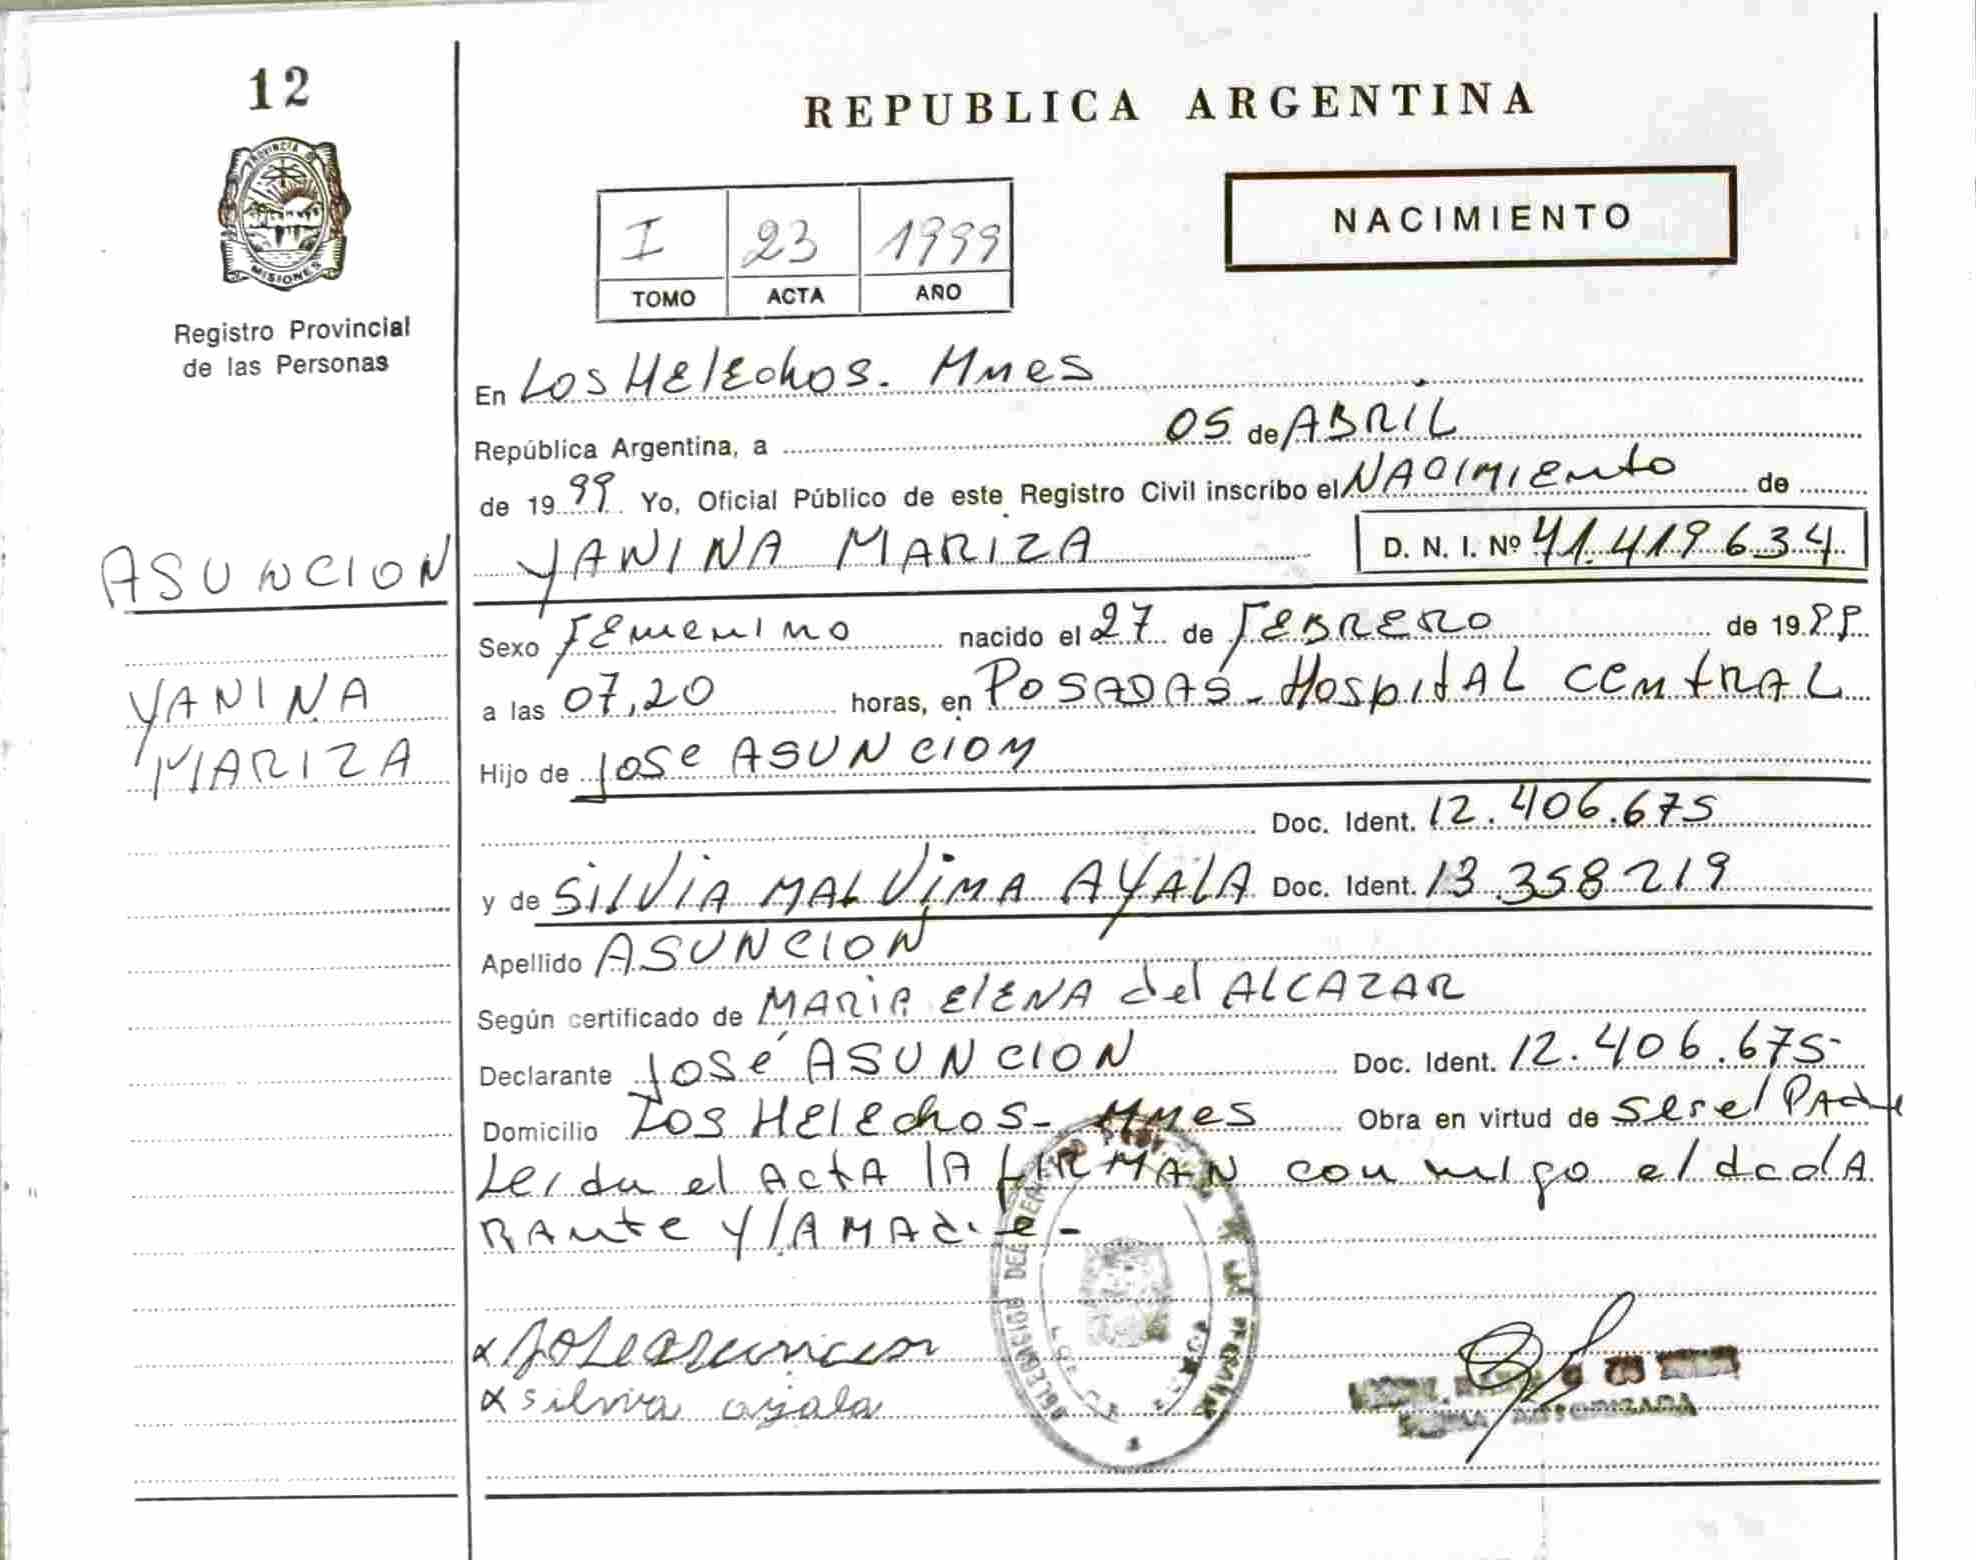 12
PROVINCIA DE
MISIONES
Registro Provincial
de las Personas
REPUBLICA ARGENTINA
NACIMIENTO
I 23 1999
TOMO ACTA AÑO
En Los Helechos. Mnes
República Argentina, a 05 de ABRIL
de 1999 Yo, Oficial Público de este Registro Civil inscribo el NACIMIENTO de
ASUNCION YANINA MARIZA D. N. I. Nº 41.419.634
Sexo Femenino nacido el 27 de FEBRERO de 1999
YANINA a las 07,20 horas, en POSADAS - Hospital CENTRAL
MARIZA Hijo de José ASUNCION
Doc. Ident. 12.406.675
y de SILVIA MALVINA AYALA Doc. Ident. 13.358.219
Apellido ASUNCION
Según certificado de MARIA ELENA del ALCAZAR
Declarante José ASUNCION Doc. Ident. 12.406.675
Domicilio Los Helechos - Mnes Obra en virtud de ser el PAdre
Leida el ActA lA fiRMAN conmigo el declA
RAnte Y lA MAdre -
x Jose asuncion
x silvia ayala
FIRMA AUTORIZADA